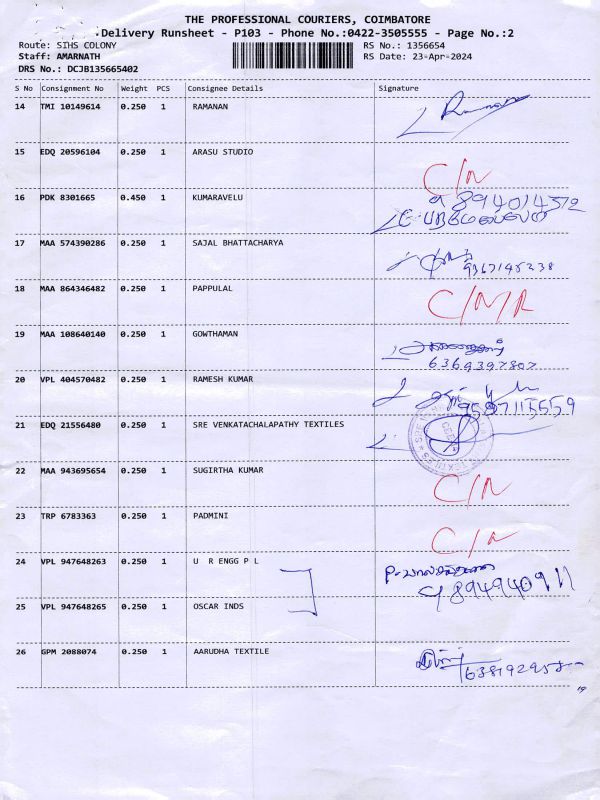 THE PROFESSIONAL COURIERS, COIMBATORE
Delivery Runsheet - P103 - Phone No.:0422-3505555 - Page No.:2
Route: SIHS COLONY RS No.: 1356654
Staff: AMARNATH RS Date: 23-Apr-2024
DRS No.: DCJB135665402
S No Consignment No Weight PCS Consignee Details Signature
14 TMI 10149614 0.250 1 RAMANAN
15 EDQ 20596104 0.250 1 ARASU STUDIO
C/N
16 PDK 8301665 0.450 1 KUMARAVELU
17 MAA 574390286 0.250 1 SAJAL BHATTACHARYA
9367145238
18 MAA 864346482 0.250 1 PAPPULAL
C/N/R
19 MAA 108640140 0.250 1 GOWTHAMAN
6369397807
20 VPL 404570482 0.250 1 RAMESH KUMAR
9597115559
21 EDQ 21556480 0.250 1 SRE VENKATACHALAPATHY TEXTILES
22 MAA 943695654 0.250 1 SUGIRTHA KUMAR
C/N
23 TRP 6783363 0.250 1 PADMINI
C/N
24 VPL 947648263 0.250 1 U R ENGG P L
9894940911
25 VPL 947648265 0.250 1 OSCAR INDS
26 GPM 2088074 0.250 1 AARUDHA TEXTILE
19